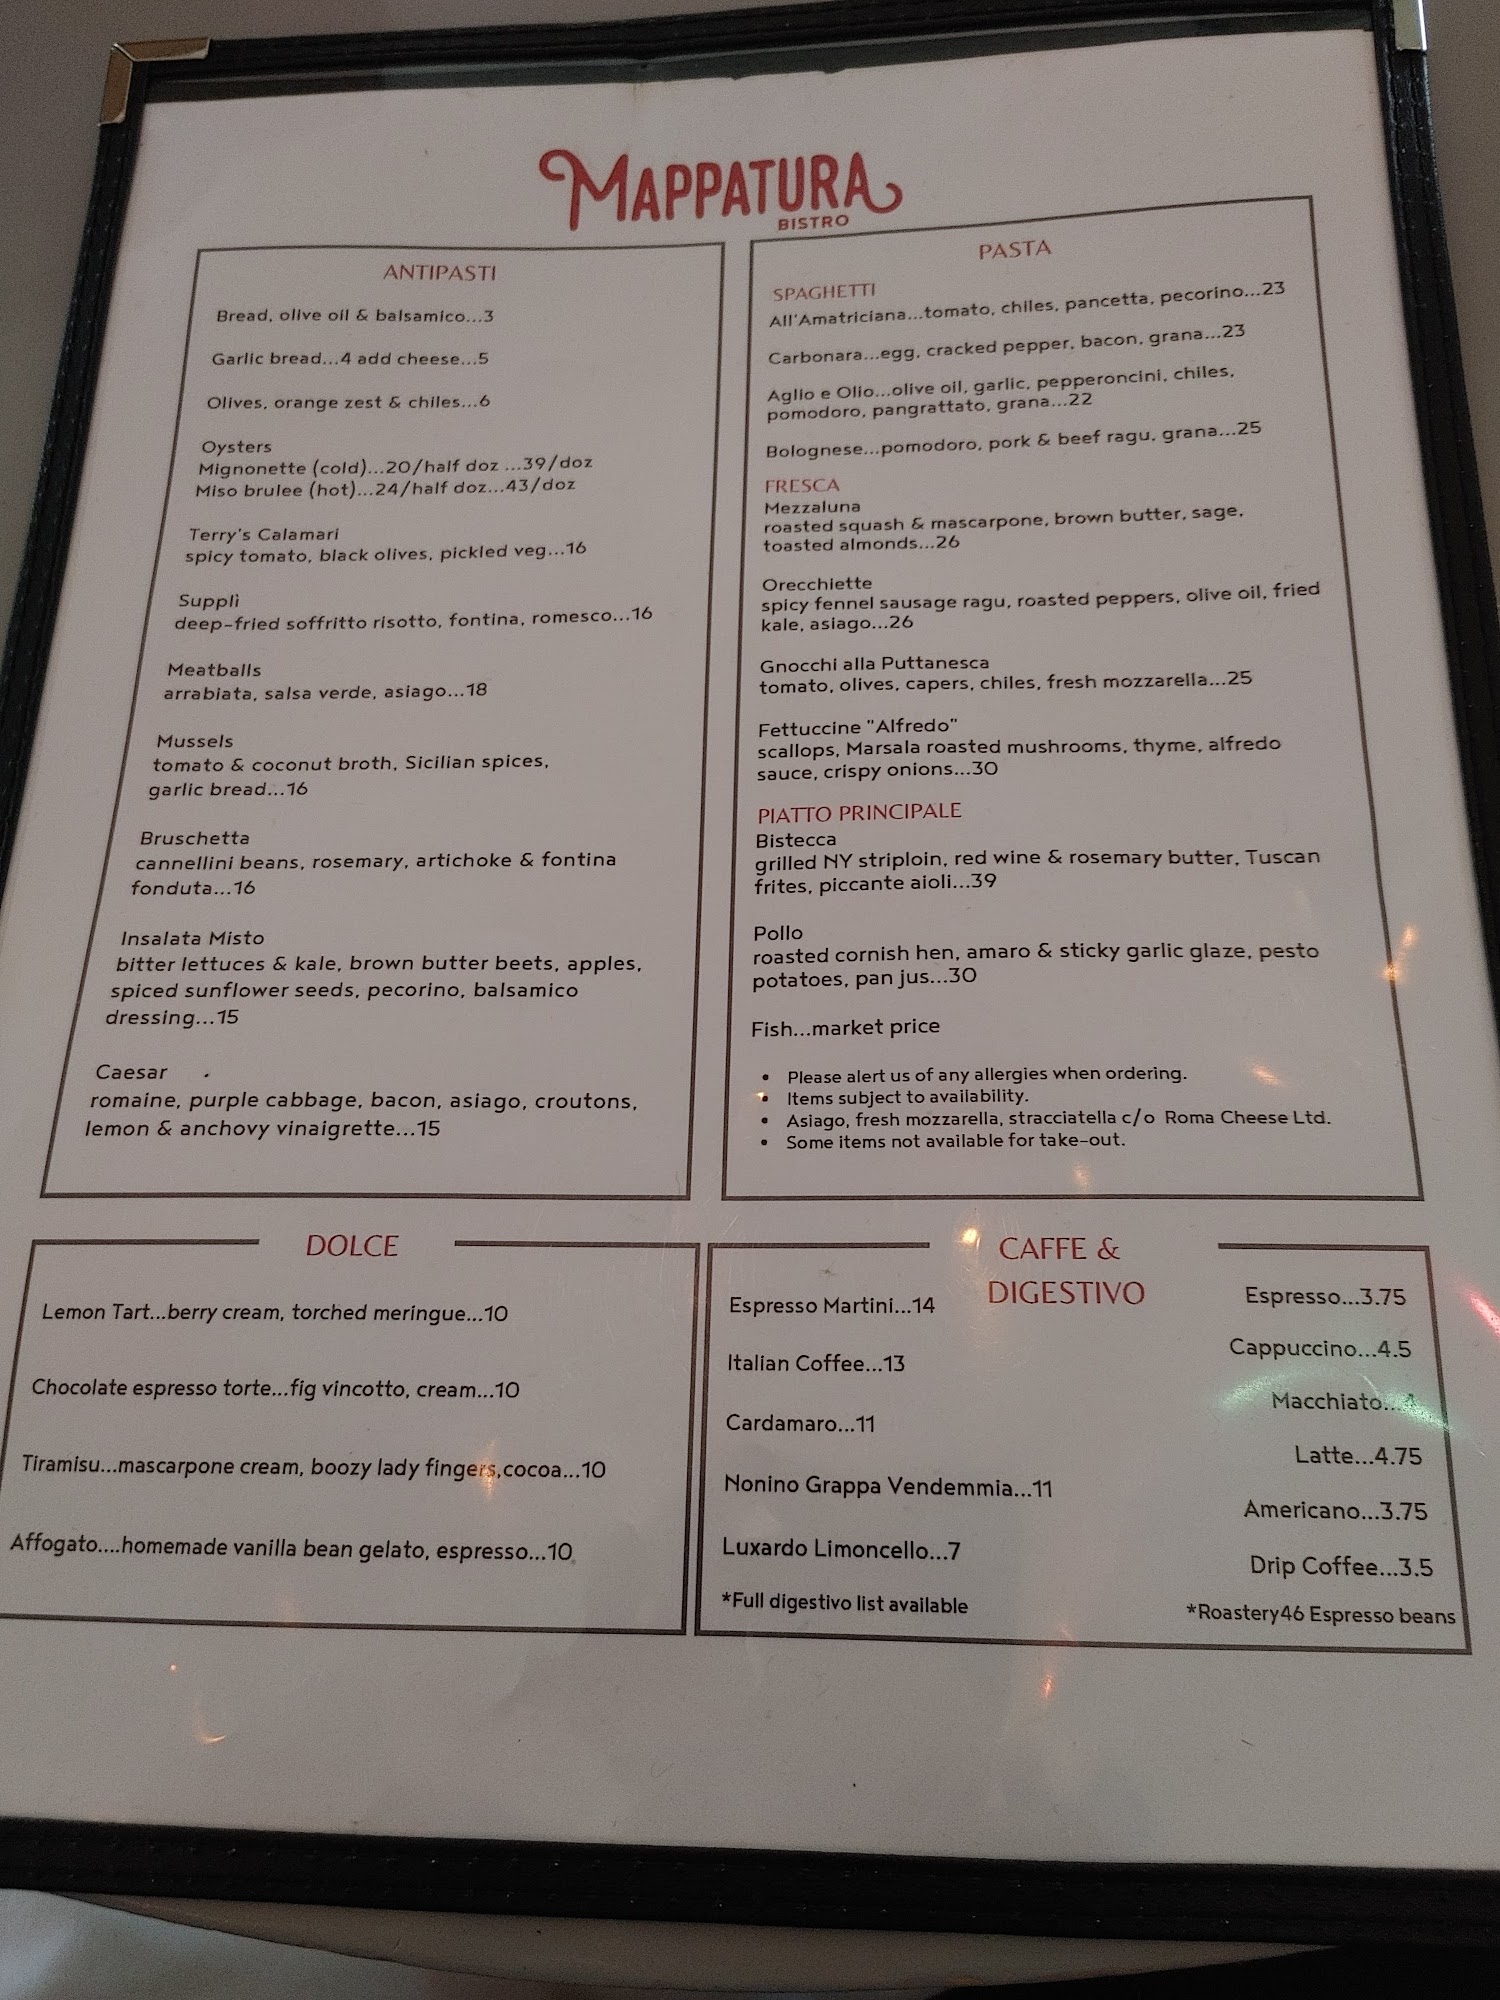 MAPPATURA
BISTRO
ANTIPASTI
Bread, olive oil & balsamico...3
Garlic bread...4 add cheese...5
Olives, orange zest & chiles...6
Oysters
Mignonette (cold)...20/half doz ...39/doz
Miso brulee (hot)...24/half doz...43/doz
Terry's Calamari
spicy tomato, black olives, pickled veg...16
Supplì
deep-fried soffritto risotto, fontina, romesco...16
Meatballs
arrabiata, salsa verde, asiago...18
Mussels
tomato & coconut broth, Sicilian spices,
garlic bread...16
Bruschetta
cannellini beans, rosemary, artichoke & fontina
fonduta...16
Insalata Misto
bitter lettuces & kale, brown butter beets, apples,
spiced sunflower seeds, pecorino, balsamico
dressing...15
Caesar
romaine, purple cabbage, bacon, asiago, croutons,
lemon & anchovy vinaigrette...15
PASTA
SPAGHETTI
All'Amatriciana...tomato, chiles, pancetta, pecorino...23
Carbonara...egg, cracked pepper, bacon, grana...23
Aglio e Olio...olive oil, garlic, pepperoncini, chiles,
pomodoro, pangrattato, grana...22
Bolognese...pomodoro, pork & beef ragu, grana...25
FRESCA
Mezzaluna
roasted squash & mascarpone, brown butter, sage,
toasted almonds...26
Orecchiette
spicy fennel sausage ragu, roasted peppers, olive oil, fried
kale, asiago...26
Gnocchi alla Puttanesca
tomato, olives, capers, chiles, fresh mozzarella...25
Fettuccine "Alfredo"
scallops, Marsala roasted mushrooms, thyme, alfredo
sauce, crispy onions...30
PIATTO PRINCIPALE
Bistecca
grilled NY striploin, red wine & rosemary butter, Tuscan
frites, piccante aioli...39
Pollo
roasted cornish hen, amaro & sticky garlic glaze, pesto
potatoes, pan jus...30
Fish...market price
• Please alert us of any allergies when ordering.
• Items subject to availability.
• Asiago, fresh mozzarella, stracciatella c/o Roma Cheese Ltd.
• Some items not available for take-out.
DOLCE
Lemon Tart...berry cream, torched meringue...10
Chocolate espresso torte...fig vincotto, cream...10
Tiramisu...mascarpone cream, boozy lady fingers,cocoa...10
Affogato....homemade vanilla bean gelato, espresso...10
CAFFE &
DIGESTIVO
Espresso Martini...14
Italian Coffee...13
Cardamaro...11
Nonino Grappa Vendemmia...11
Luxardo Limoncello...7
*Full digestivo list available
Espresso...3.75
Cappuccino...4.5
Macchiato...
Latte...4.75
Americano...3.75
Drip Coffee...3.5
*Roastery46 Espresso beans